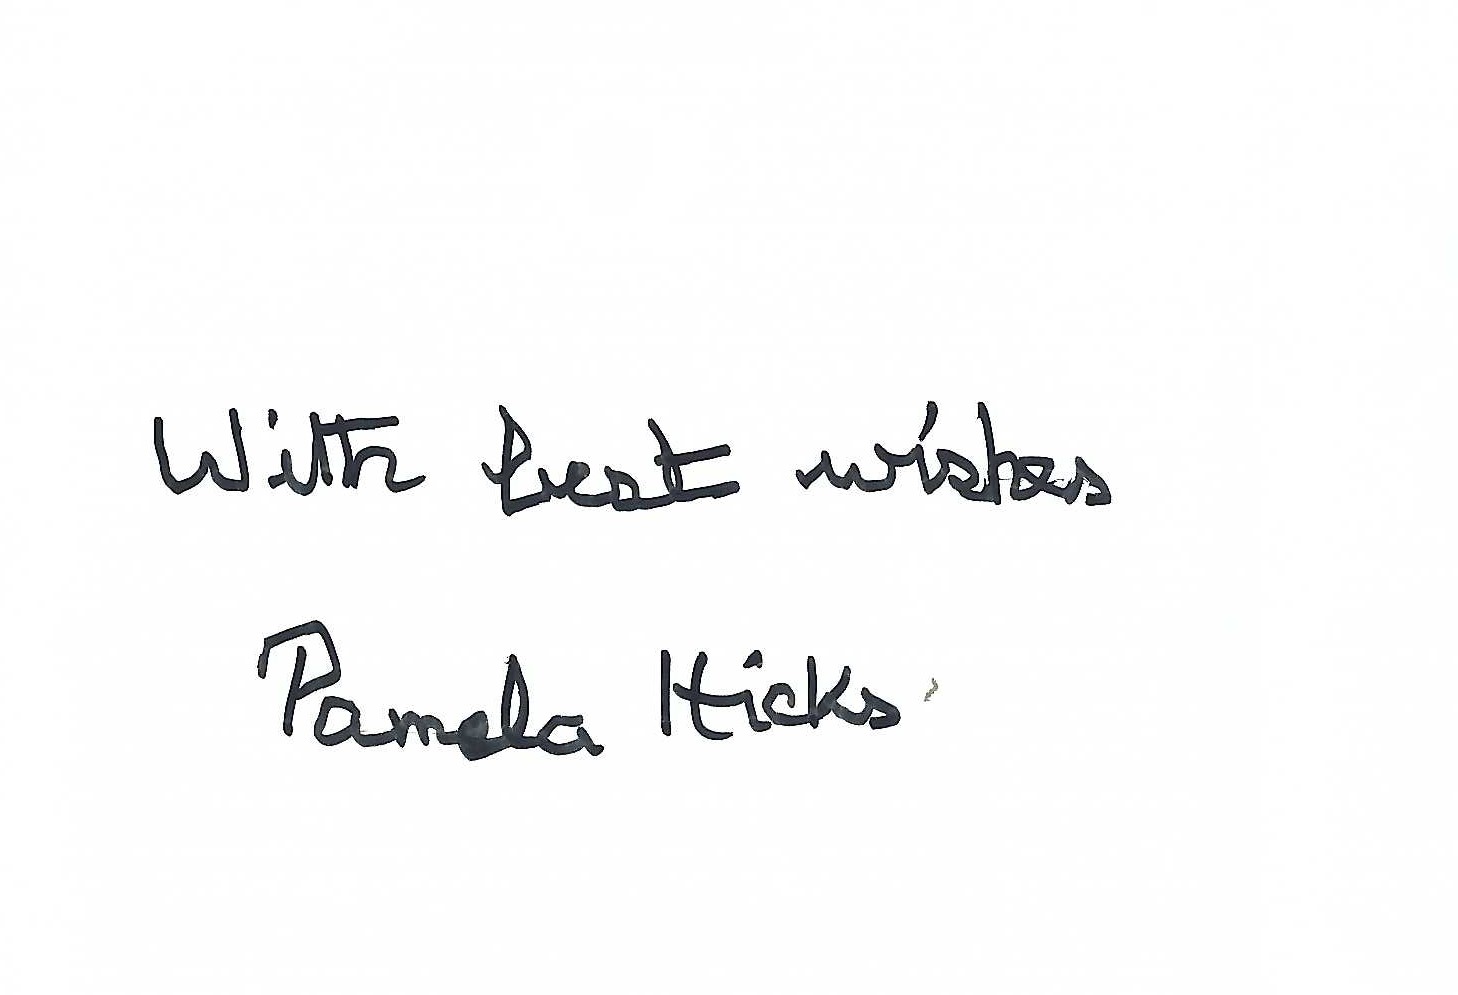 With best wishes
Pamela Hicks